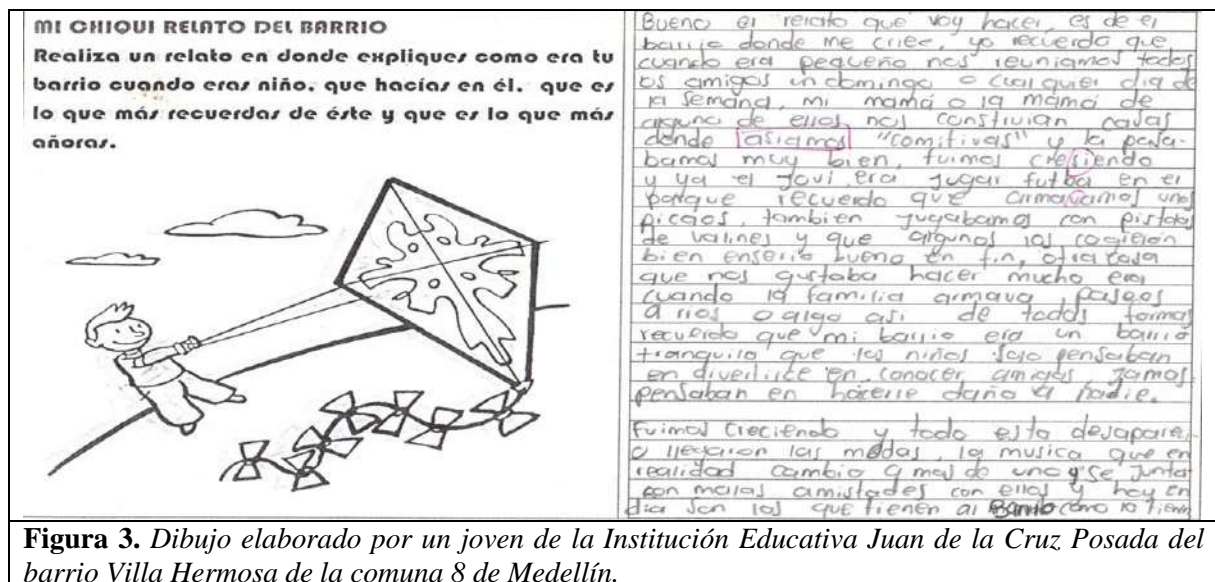 MI CHIQUI RELATO DEL BARRIO
Realiza un relato en donde expliques como era tu
barrio cuando eras niño, que hacías en él, que es
lo que más recuerdas de éste y que es lo que más
añoras.
Bueno el relato que voy hacer, es de el
barrio donde me criee, yo recuerdo que
cuando era pequeño nos reuniamos todos
os amigos un domingo o cualquier dia de
la semana, mi mamá o la mamá de
alguno de ellos nos construian casas
donde asiamos "comitivas" y la pasa-
bamos muy bien, fuimos cresiendo
y ya el Jovi era jugar futbol en el
parque recuerdo que armavamos unos
picaos, tambien jugabamos con pistolas
de valines y que algunos los cogieron
bien enserio bueno en fin, otra cosa
que nos gustaba hacer mucho era
cuando la familia armava paseos
a rios o algo asi. de todas formas
recuerdo que mi barrio era un barrio
tranquilo que los niños solo pensaban
en divertirce en conocer amigos jamas
pensaban en hacerle daño a nadie.
Fuimos creciendo y todo esto desapare
o llegaron las modas, la musica que en
realidad cambio a mas de uno y se juntar
con malas amistades con ellos y hoy en
dia son los que tienen al Barrio como lo tienen
Figura 3. Dibujo elaborado por un joven de la Institución Educativa Juan de la Cruz Posada del
barrio Villa Hermosa de la comuna 8 de Medellín.